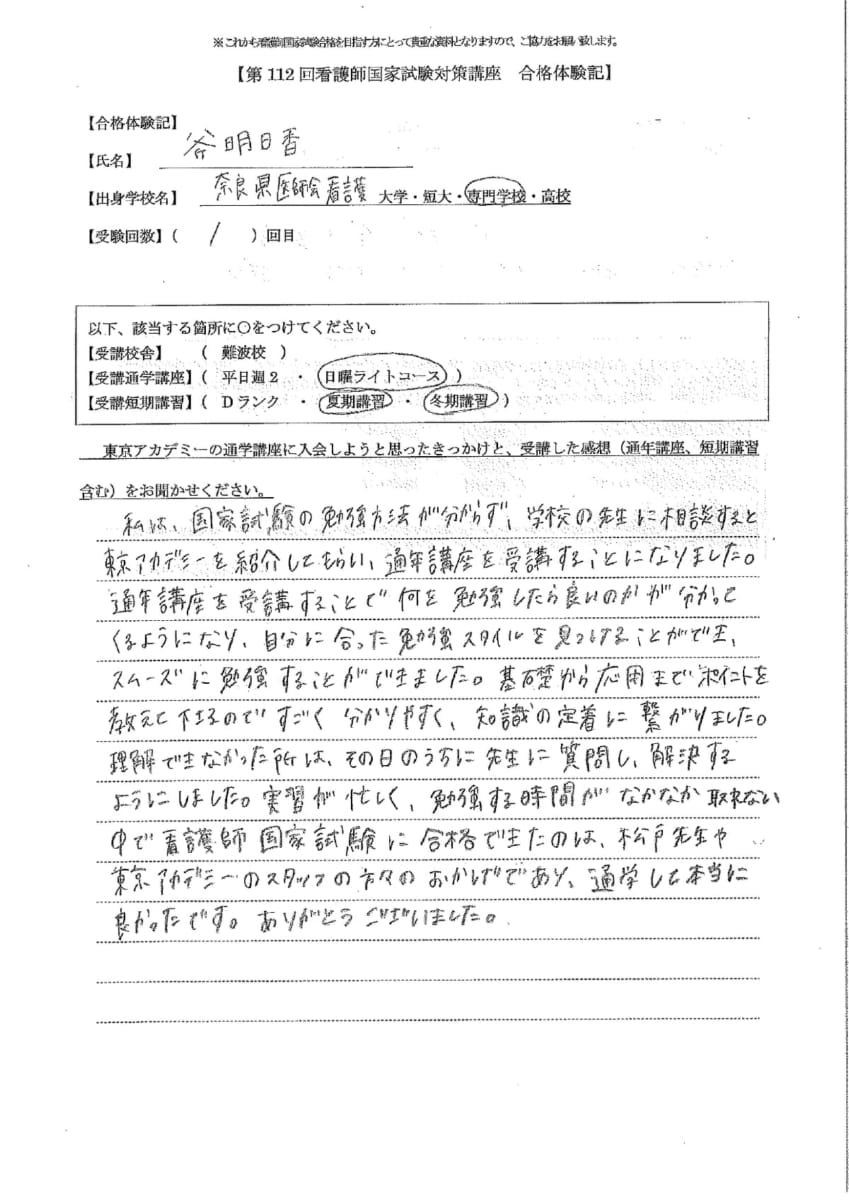 ※これから看護師国家試験合格を目指す方にとって貴重な資料となりますので、ご協力をお願い致します。
【第112回看護師国家試験対策講座　合格体験記】
【合格体験記】
【氏名】 谷明日香
【出身学校名】 奈良県医師会看護 大学・短大・専門学校・高校
【受験回数】( 1 ）回目
以下、該当する箇所に〇をつけてください。
【受講校舎】　（　難波校　）
【受講通学講座】（　平日週2　・　日曜ライトコース　）
【受講短期講習】（　Dランク　・　夏期講習　・　冬期講習　）
東京アカデミーの通学講座に入会しようと思ったきっかけと、受講した感想（通年講座、短期講習
含む）をお聞かせください。
私は、国家試験の勉強方法が分からず、学校の先生に相談すると
東京アカデミーを紹介してもらい、通年講座を受講することになりました。
通年講座を受講することで何を勉強したら良いのかが分かって
くるようになり、自分に合った勉強スタイルを見つけることができ、
スムーズに勉強することができました。基礎から応用までポイントを
教えて下さるのですごく分かりやすく、知識の定着に繋がりました。
理解できなかった所は、その日のうちに先生に質問し、解決する
ようにしました。実習が忙しく、勉強する時間がなかなか取れない
中で看護師国家試験に合格できたのは、松戸先生や
東京アカデミーのスタッフの方々のおかげであり、通学して本当に
良かったです。ありがとうございました。